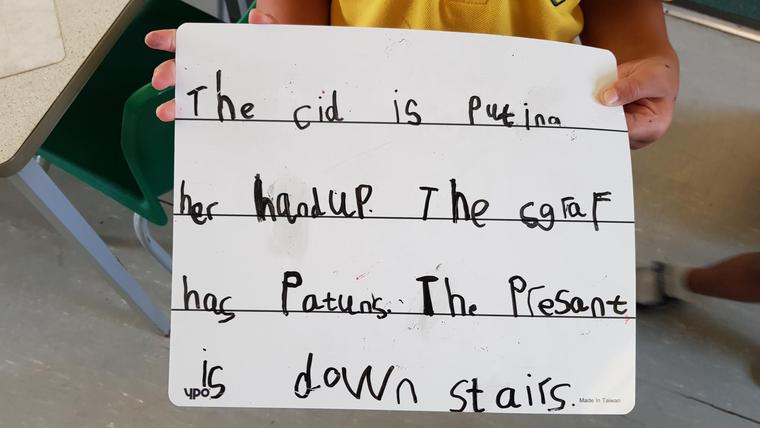 The cid is puting
her hand up. The sgraf
has Patuns. The Present
is down stairs.
ypo
Made in Taiwan